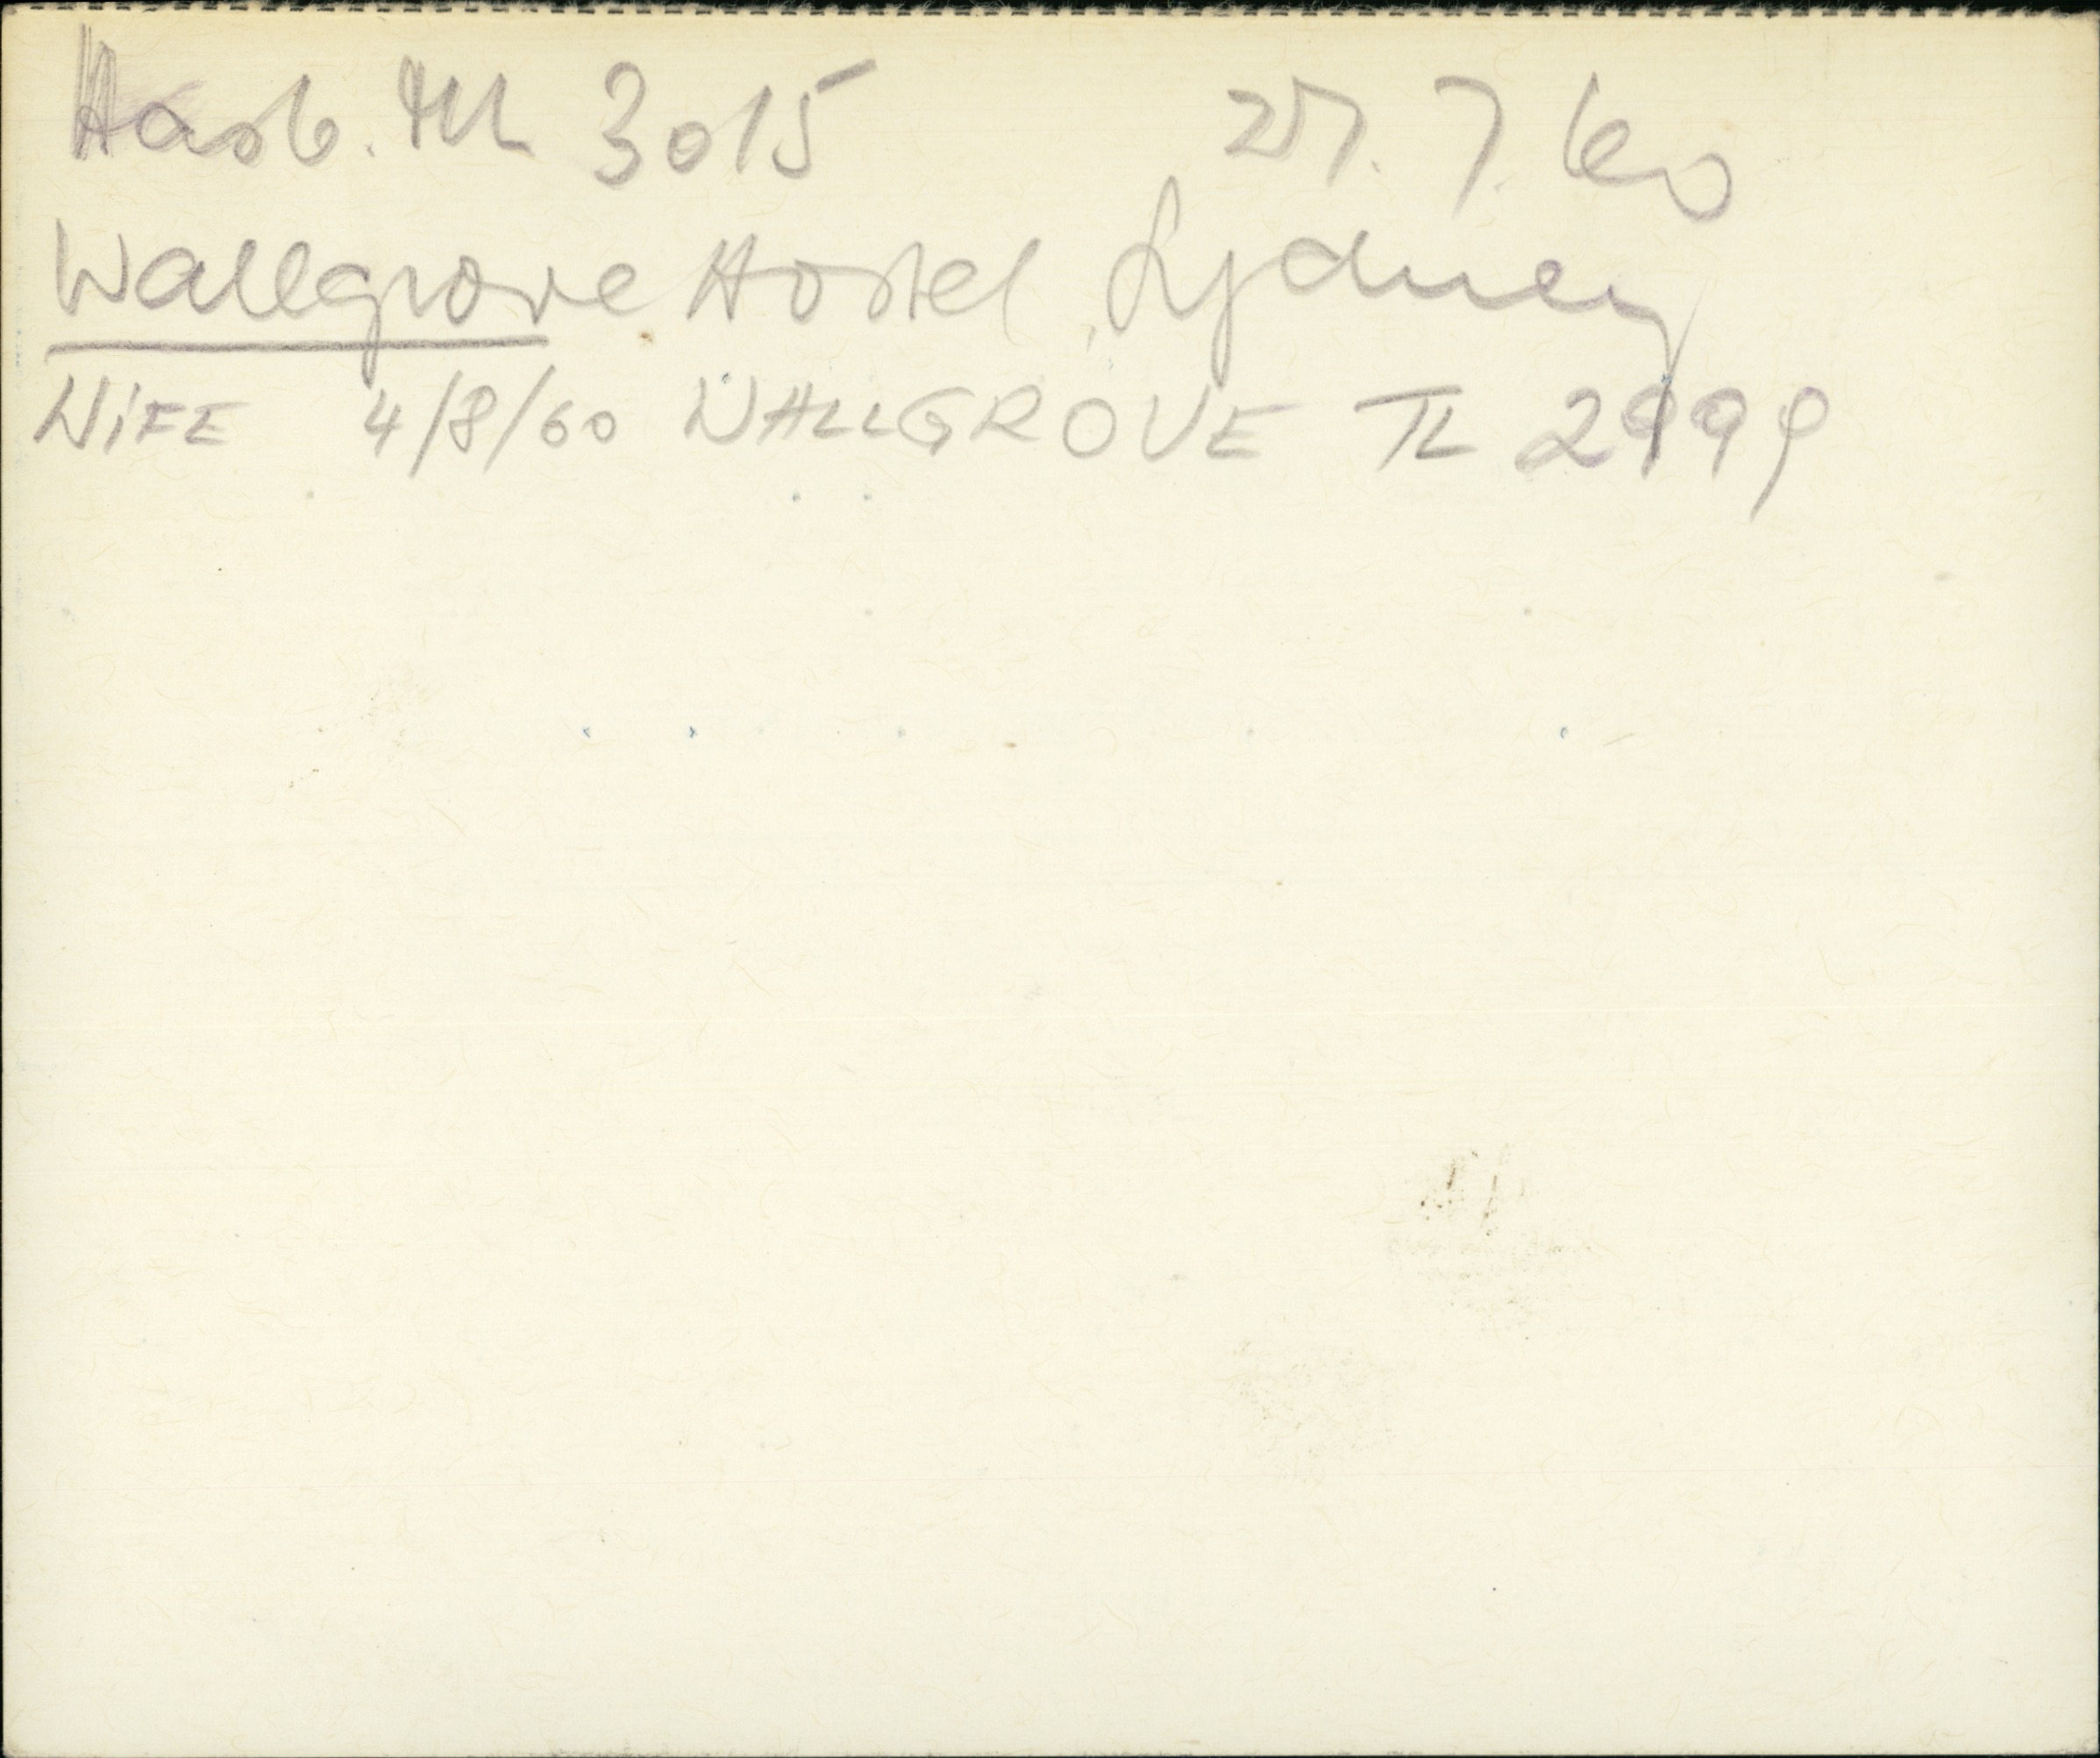 Hasb. TL 3015 27. 7. 60
Wallgrove Hostel, Sydney
WIFE 4/8/60 WALLGROVE TL 2999